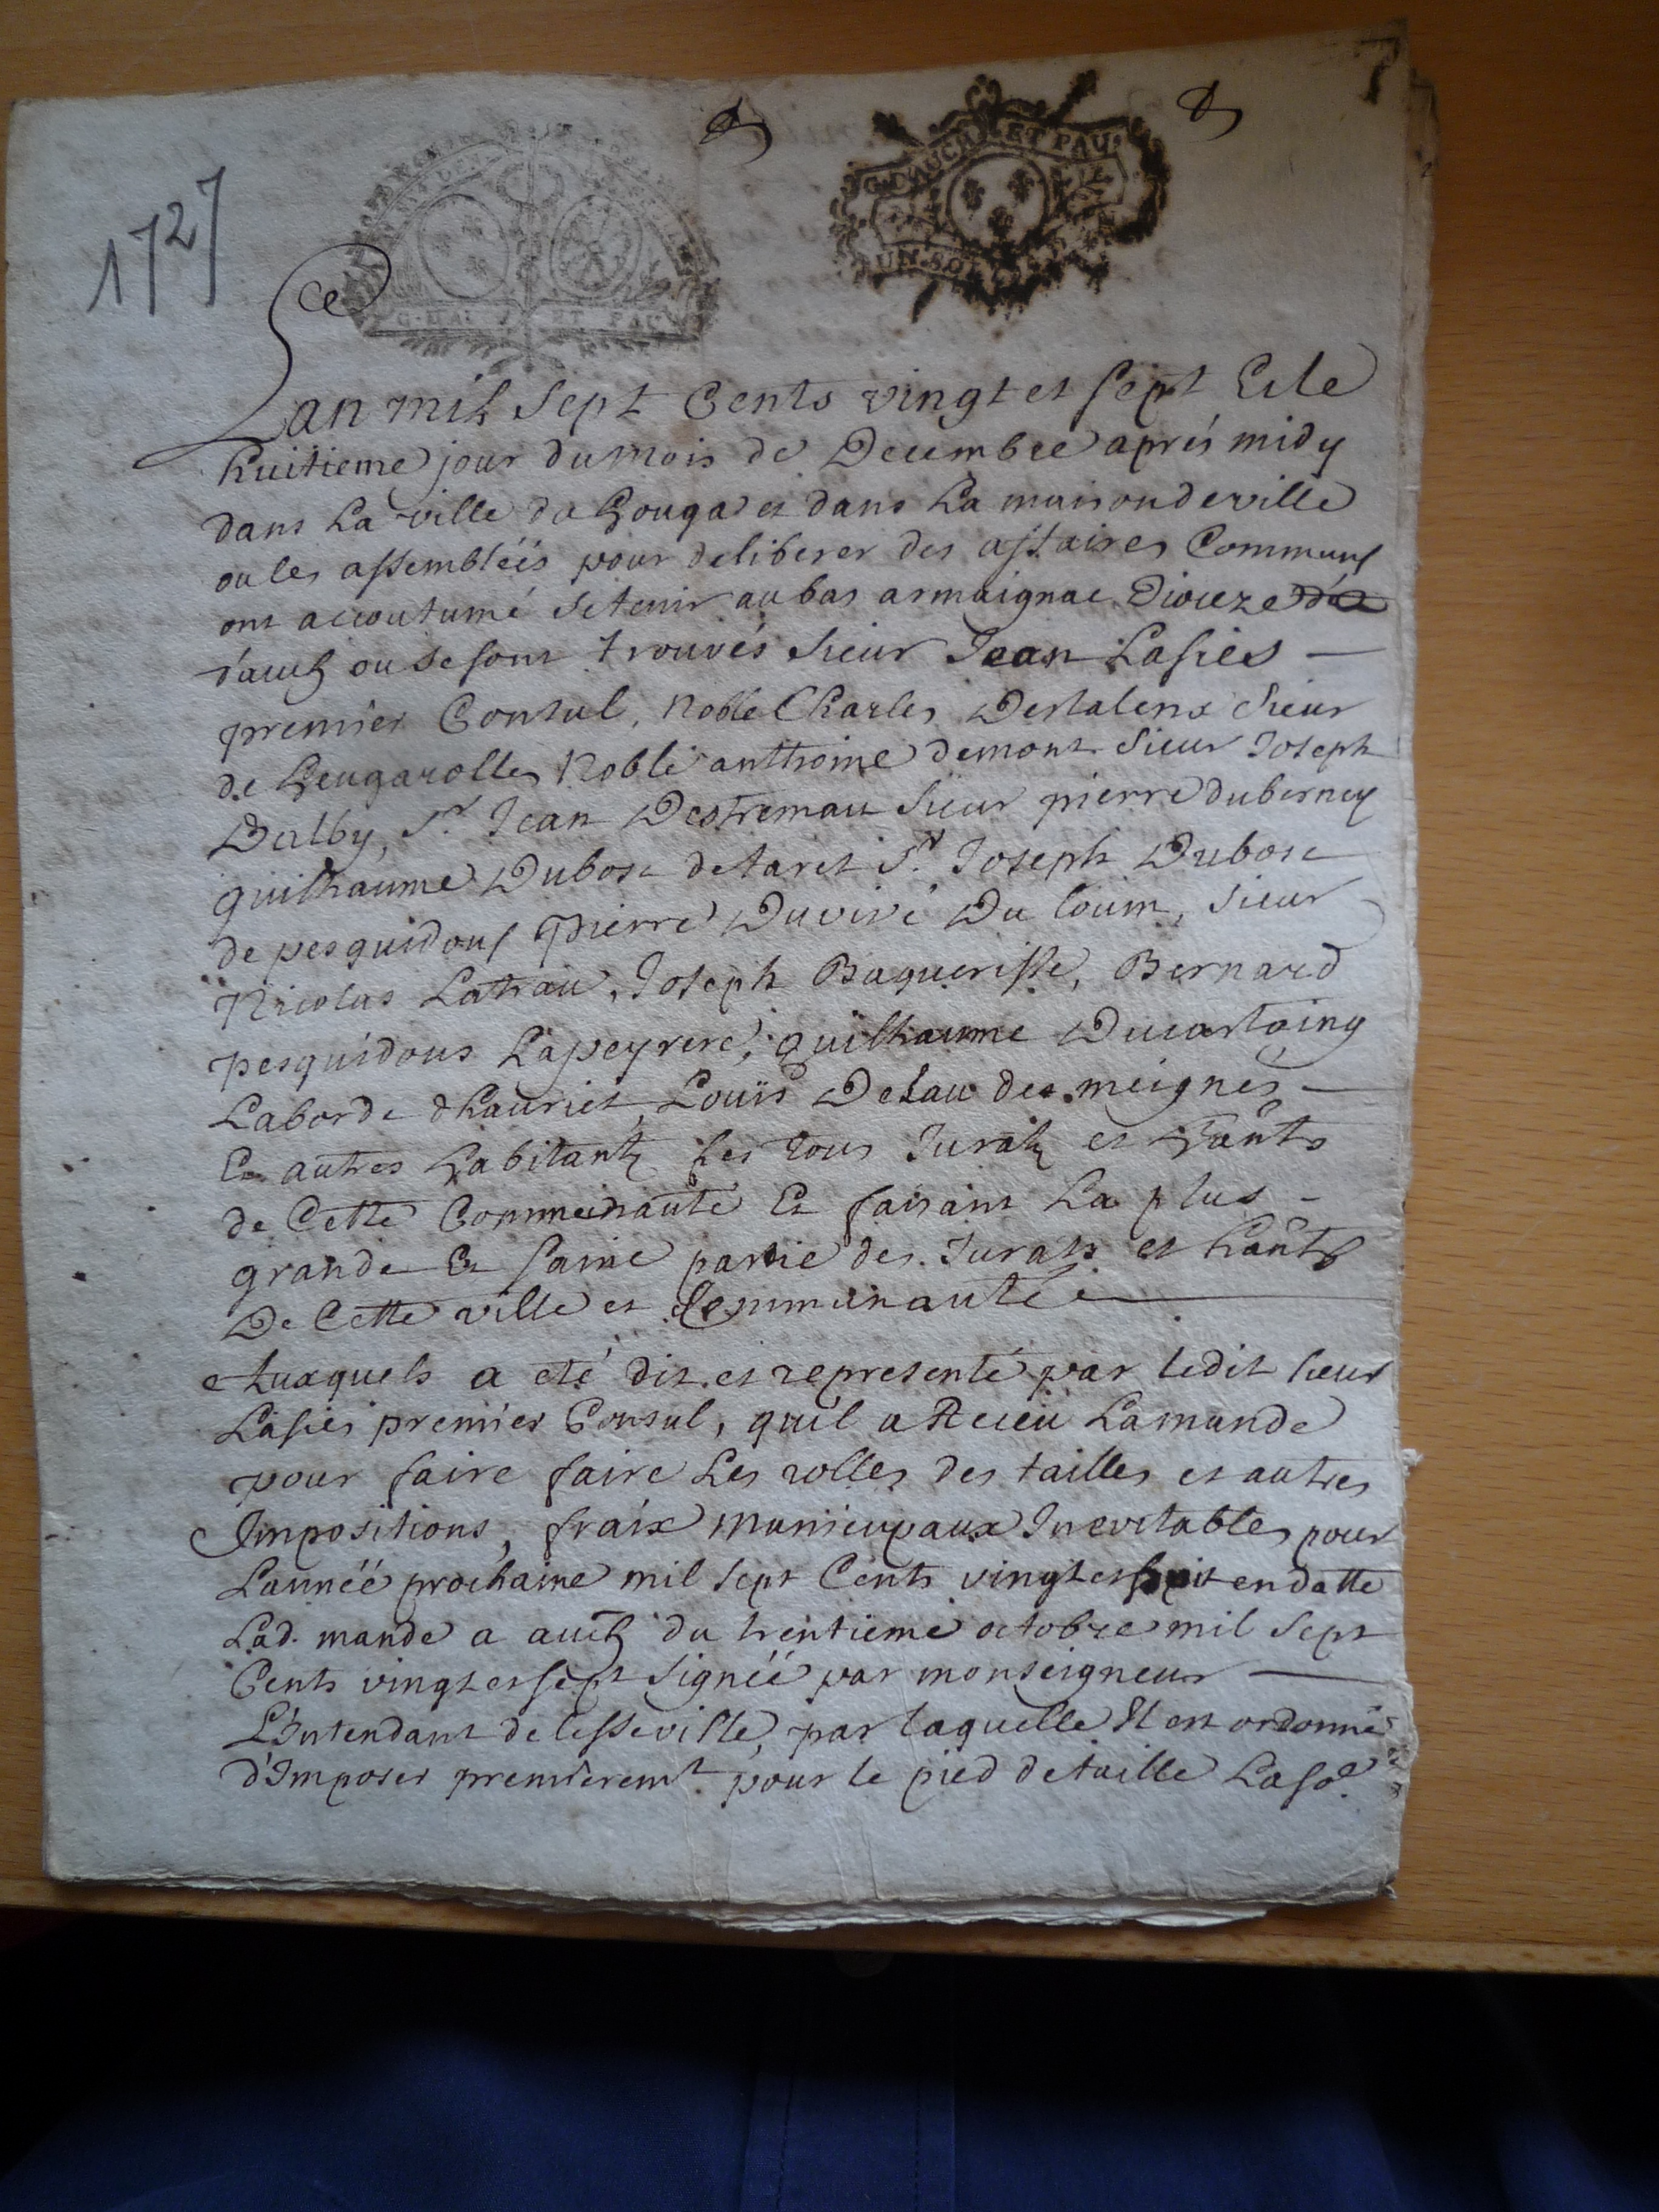 1727
G. D'AUCH ET PAU
UN SOL
G. D'AU ET PAU
Lan mil Sept Cents vingt et sept Et le
huitieme jour du mois de Decembre aprés midy
dans La ville du houga et dans La maison de ville
ou les assembléés pour deliberer des affaires Communs
ont accoutumé se tenir au bas armaignac Dioceze
d'auch ou se sont trouvés Sieur Jean Lasies
premier Consul, Noble Charles Destalenx Sieur
de heugarolles Noble anthoine demont Sieur Joseph
Dalby, Sr. Jean Destremau Sieur pierre duberney
guilhaume Dubosc de taret Sr. Joseph Dubosc
de pesquidous pierre Duviré Du loum, Sieur
Nicolas Latrau, Joseph Baquerisse, Bernard
pesquidous Lapeyrere, guilhaume Ducastaing
Laborde dhauriet, Louis Delau des meignés
Et autres habitants Les tous Jurats et hants
de Cette Communauté Et faisant La plus
grande Et saine partie des Jurats et hants
De Cette ville et Communauté
Auxquels a eté dit et representé par ledit sieur
Lasies premier Consul, quil a Receu La mande
pour faire faire Les rolles des tailles et autres
Impositions, fraix municipaux Inevitables pour
Lannéé prochaine mil Sept Cents vingt et huit en datte
Lad. mande a auch du trentieme octobre mil Sept
Cents vingt et sept Signéé par monseigneur
L'Intendant de lesseville, par laquelle Il est ordonné
d'Imposer premieremt. pour le pied de taille La soe.